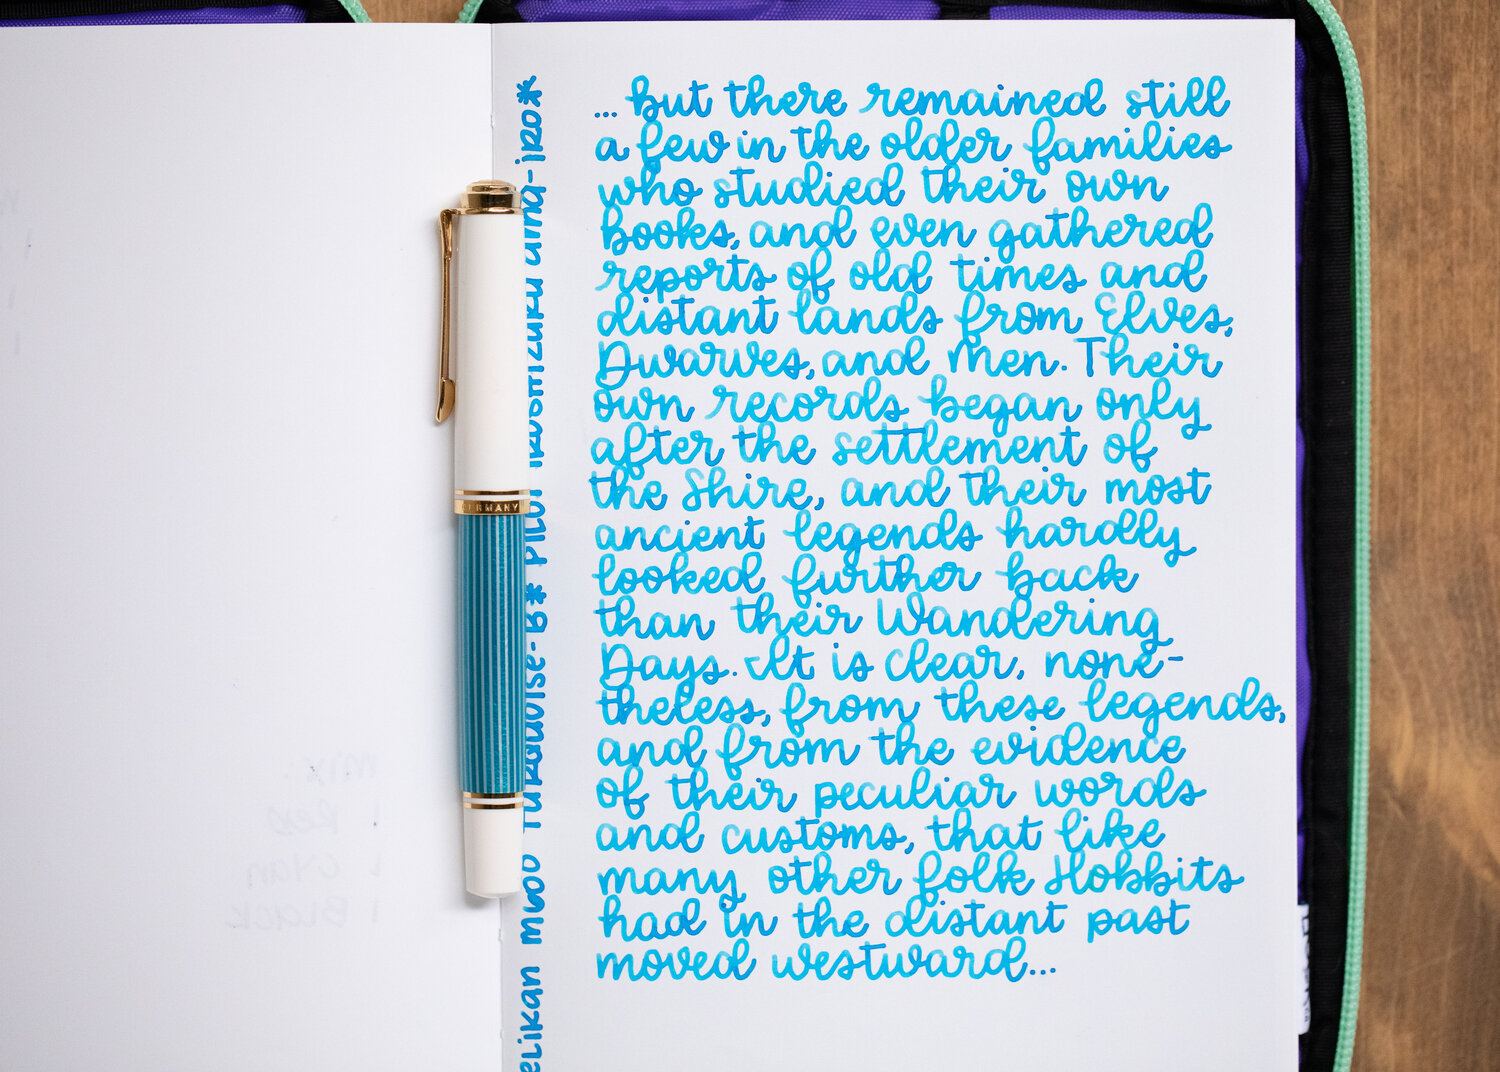 ... but there remained still
a few in the older families
who studied their own
books, and even gathered
reports of old times and
distant lands from Elves,
Dwarves, and Men. Their
own records began only
after the settlement of
the Shire, and their most
ancient legends hardly
looked further back
than their Wandering
Days. It is clear, none-
theless, from these legends,
and from the evidence
of their peculiar words
and customs, that like
many other folk Hobbits
had in the distant past
moved westward...
elikan M600 Turquoise-B* Pilot Iroshizuku ama-iro*
GERMANY
Mix:
1 Red
1 Cyan
1 Black